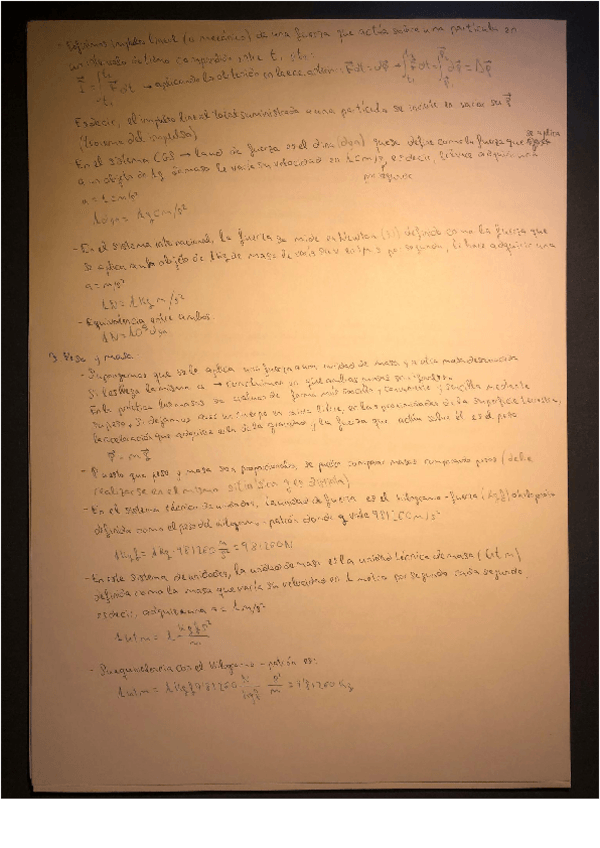 - Definimos impulso lineal (o mecánico) de una fuerza que actúa sobre una partícula en
un intervalo de tiempo comprendido entre t₁ y t₂:
I⃗ = ∫ F⃗ dt → aplicando la 2ª ley: F⃗dt = dp⃗ → ∫ F⃗ dt = ∫ dp⃗ = Δp⃗
Es decir, el impulso lineal total suministrado a una partícula se invierte en variar su p⃗
(Teorema del impulso)
En el sistema CGS → la ud de fuerza es el dina (dyn) que se define como la fuerza que se aplica
a un objeto de 1g de masa le varía su velocidad en 1 cm/s, es decir, le hace adquirir una
por segundo
a = 1 cm/s²
1 dyn = 1 g cm/s²
- En el sistema internacional, la fuerza se mide en Newton (N) definido como la fuerza que
se aplica a un objeto de 1 kg de masa le varía su v en 1 m/s por segundo, le hace adquirir una
a = m/s²
1N = 1 Kg m/s²
- Equivalencia entre ambos.
1N = 10⁵ dyn
3. Peso y masa
- Supongamos que se le aplica una fuerza a una unidad de masa y a otra masa desconocida
Si les llega la misma a → concluimos en que ambas masas son iguales.
En la práctica las masas se de forma más sencilla mediante
su peso. Si dejamos caer un cuerpo en caída libre, en las proximidades de la superficie terrestre,
la aceleración que adquiere es la de la gravedad y la fuerza que actúa sobre él es el peso
P⃗ = m g⃗
- Puesto que peso y masa son proporcionales, se puede comparar masas comparando pesos (debe
realizarse en el mismo sitio)
- En el sistema técnico de unidades, la unidad de fuerza es el kilogramo-fuerza (Kgf)
definido como el peso del kilogramo-patrón donde g vale 9.81260 m/s²
1 Kgf = 1 Kg · 9.81260 m/s² = 9.81260 N
- En este sistema de unidades, la unidad de masa es la unidad técnica de masa (utm)
definida como la masa que varía su velocidad en 1 metro por segundo cada segundo,
es decir, adquiere una a = 1 m/s²
1 utm = 1 Kgf s²/m
- Su equivalencia con el kilogramo-patrón es:
1 utm = 1 Kgf 9.81260 N/Kgf s²/m = 9.81260 Kg